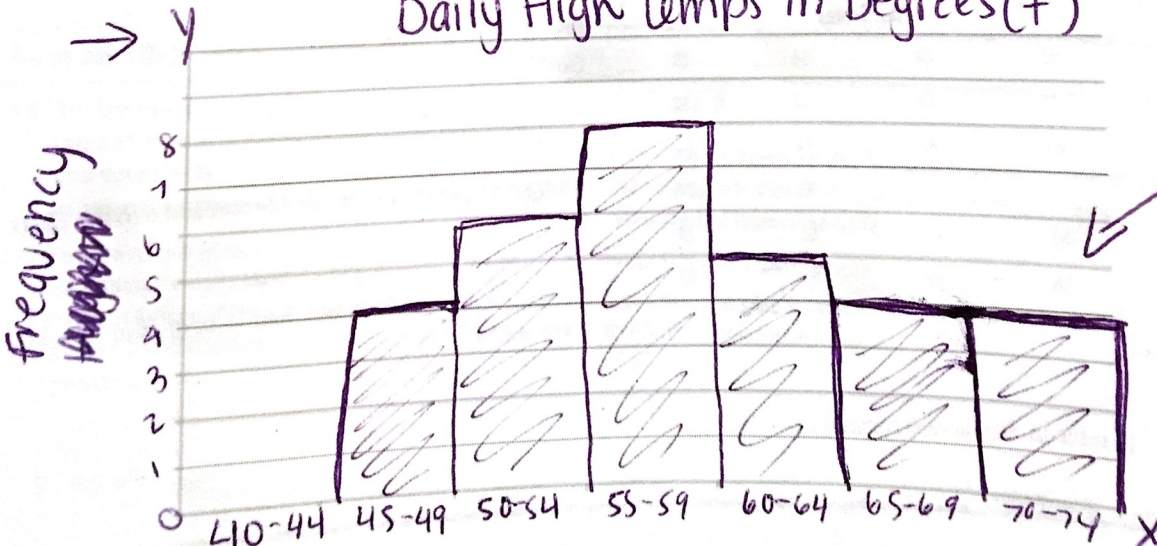 Daily High temps in Degrees (F)
Y
Frequency
8
7
6
5
4
3
2
1
0
40-44 45-49 50-54 55-59 60-64 65-69 70-74 X